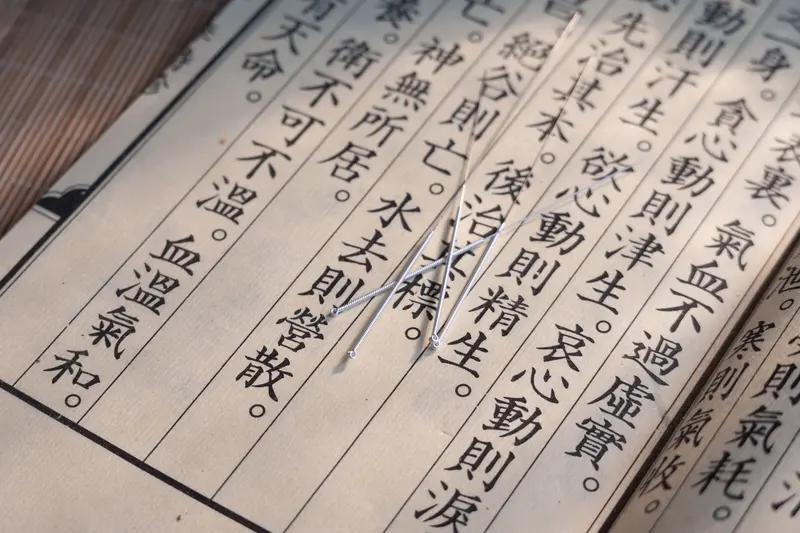 則氣耗。
泄。寒則氣收。
表裏。氣血不過虛實。
一身。貪心動則津生。哀心動則淚
動則汗生。欲心動則精生。
先治其本。後治其標。
絕谷則亡。水去則營散。
亡。神無所居。
養。衛不可不溫。血溫氣和。
有天命。